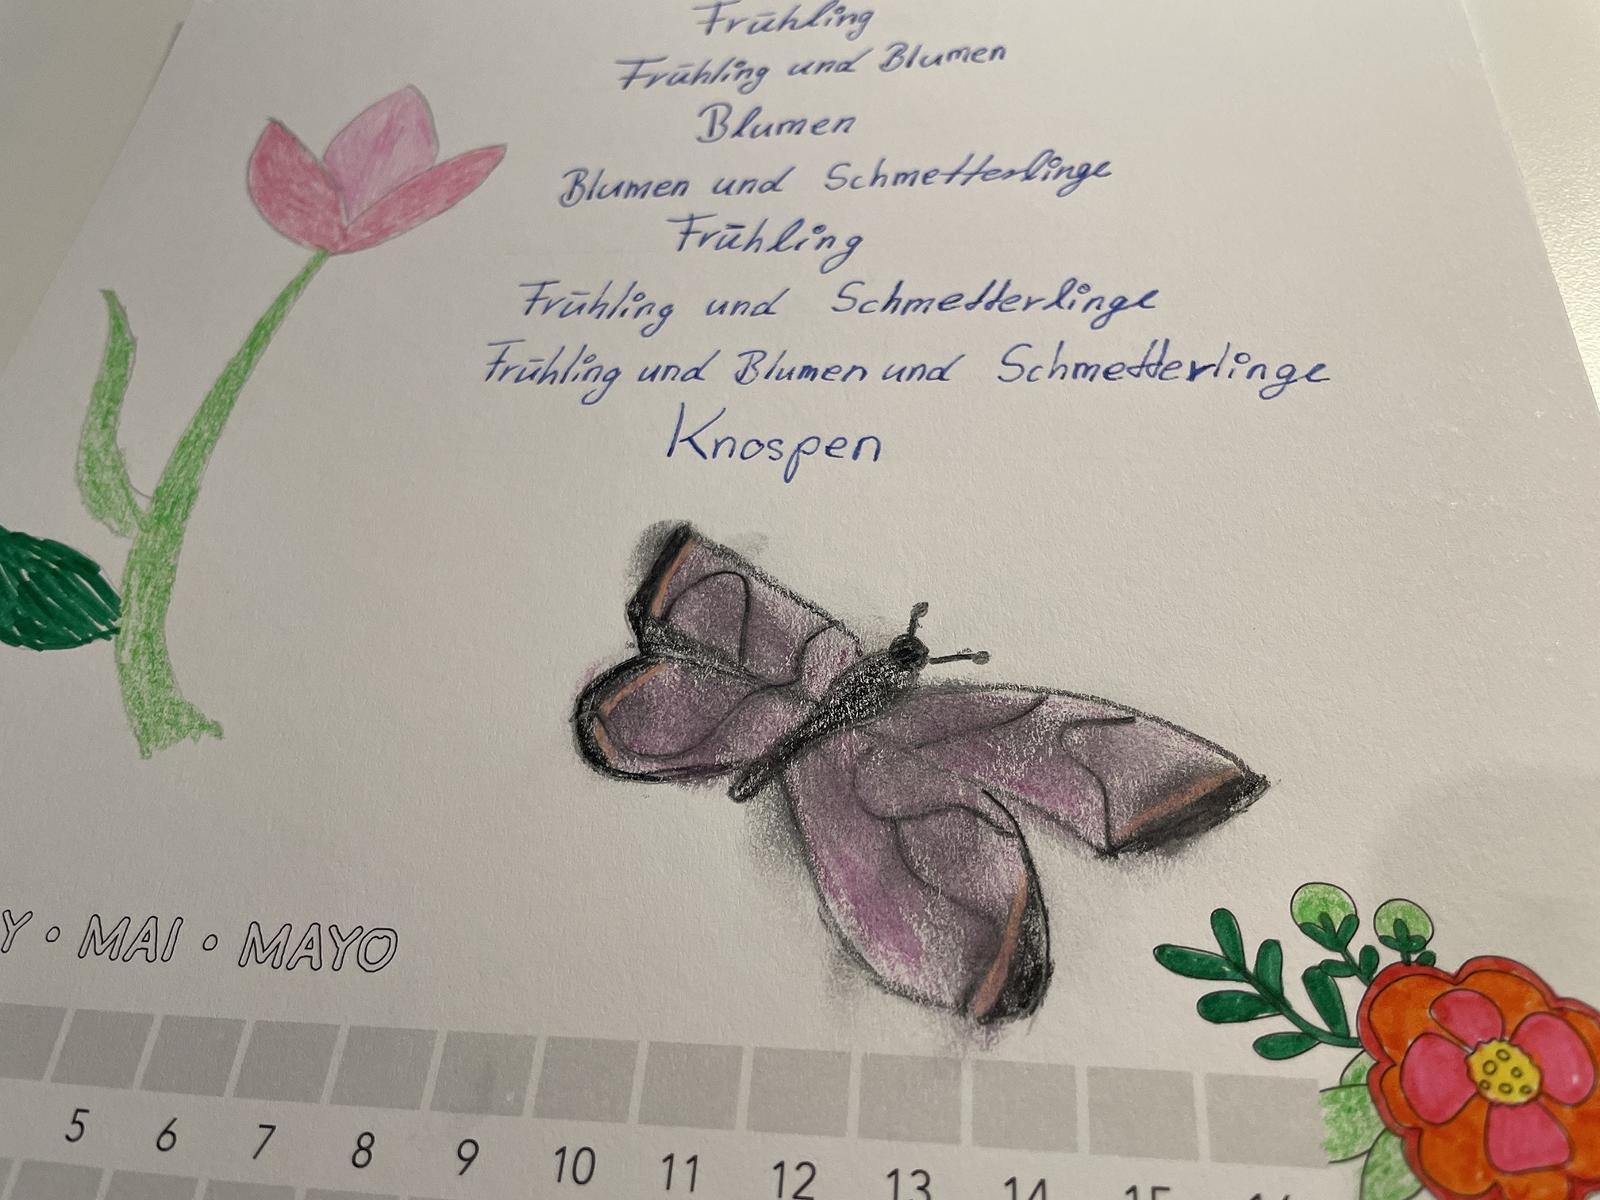 Frühling
Frühling und Blumen
Blumen
Blumen und Schmetterlinge
Frühling
Frühling und Schmetterlinge
Frühling und Blumen und Schmetterlinge
Knospen
Y • MAI • MAYO
5 6 7 8 9 10 11 12 13 14 15